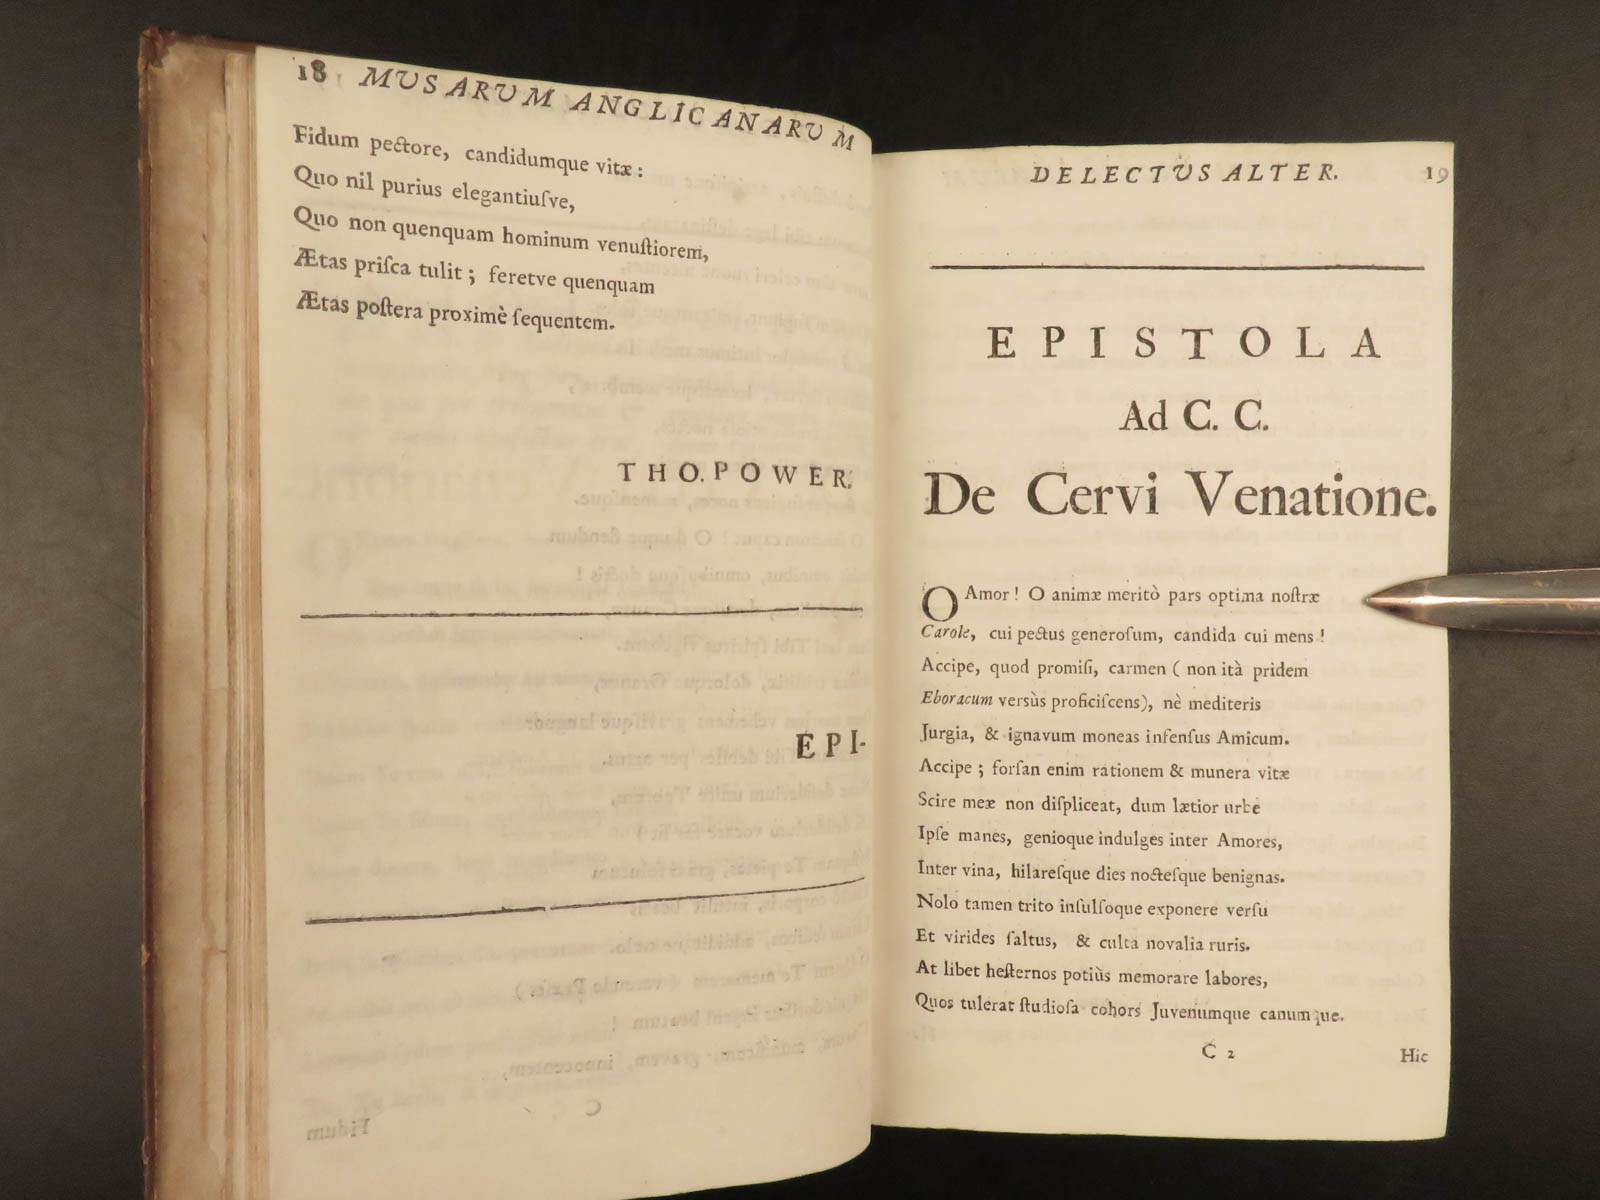 18 MUSARUM ANGLICANARUM
Fidum pectore, candidumque vitæ:
Quo nil purius elegantiuſve,
Quo non quenquam hominum venuſtiorem,
Ætas priſca tulit; feretve quenquam
Ætas poſtera proximè ſequentem.
THO. POWER.
EPI-
DELECTUS ALTER. 19
EPISTOLA
Ad C. C.
De Cervi Venatione.
O Amor! O animæ meritò pars optima noſtræ
Carole, cui pectus generoſum, candida cui mens!
Accipe, quod promiſi, carmen (non ità pridem
Eboracum versùs proficiſcens), nè mediteris
Jurgia, & ignavum moneas infenſus Amicum.
Accipe; forſan enim rationem & munera vitæ
Scire meæ non diſpliceat, dum lætior urbe
Ipſe manes, genioque indulges inter Amores,
Inter vina, hilareſque dies nocteſque benignas.
Nolo tamen trito inſulſoque exponere verſu
Et virides ſaltus, & culta novalia ruris.
At libet heſternos potiùs memorare labores,
Quos tulerat ſtudioſa cohors Juvenumque canumque.
C 2
Hic